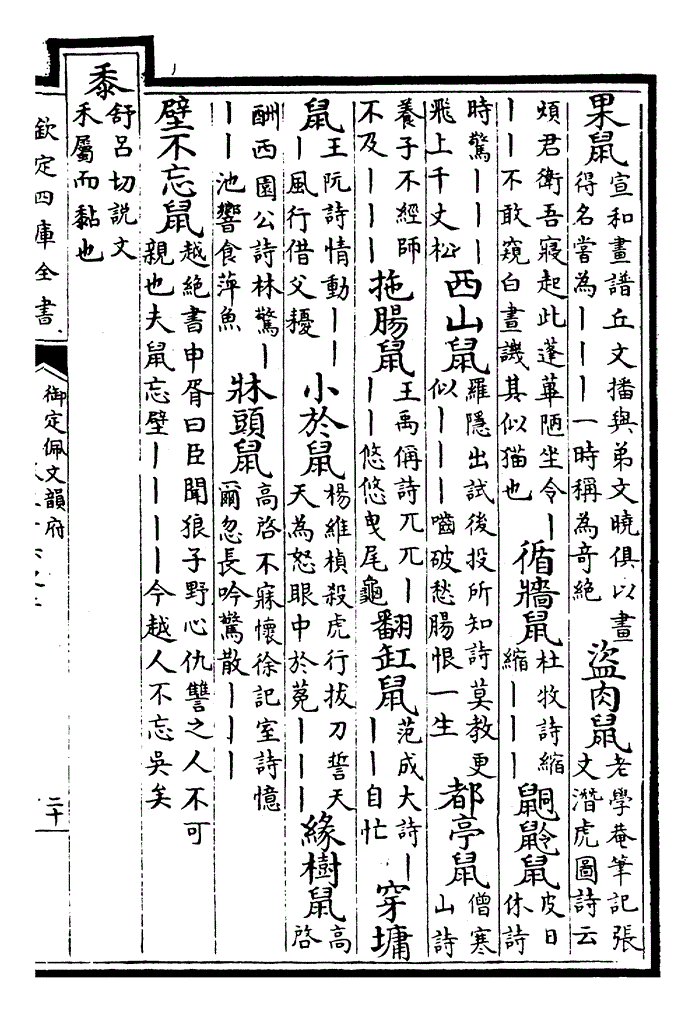 果鼠
宣和畫譜丘文播與弟文曉俱以畫
得名嘗為丨丨丨一時稱為奇絶
盜肉鼠
老學菴筆記張
文潛虎圖詩云
煩君衛吾寢起此蓬蓽陋坐令丨
丨丨不敢窺白晝譏其似猫也
循牆鼠
杜牧詩縮
縮丨丨丨
鼠
皮日
休詩
時驚丨丨丨
飛上千丈松
西山鼠
羅隱出試後投所知詩莫教更
似丨丨丨嚙破愁腸恨一生
都亭鼠
僧寒
山詩
養子不經師
不及丨丨丨
拖腸鼠
王禹偁詩兀兀丨
丨丨悠悠曳尾龜
翻缸鼠
范成大詩丨
丨丨自忙
穿墉
鼠
王阮詩情動丨丨
丨風行借父耰
小於鼠
楊維楨殺虎行拔刀誓天
天為怒眼中於菟丨丨丨
緣樹鼠
高
啓
酬西園公詩林驚丨
丨丨池響食萍魚
牀頭鼠
高啓不寐懷徐記室詩憶
爾忽長吟驚散丨丨丨
壁不忘鼠
越絶書申胥曰臣聞狼子野心仇讐之人不可
親也夫鼠忘壁丨丨丨丨今越人不忘吳矣
黍
舒呂切說文
禾屬而黏也
欽定四庫全書
御定佩文韻府
二十